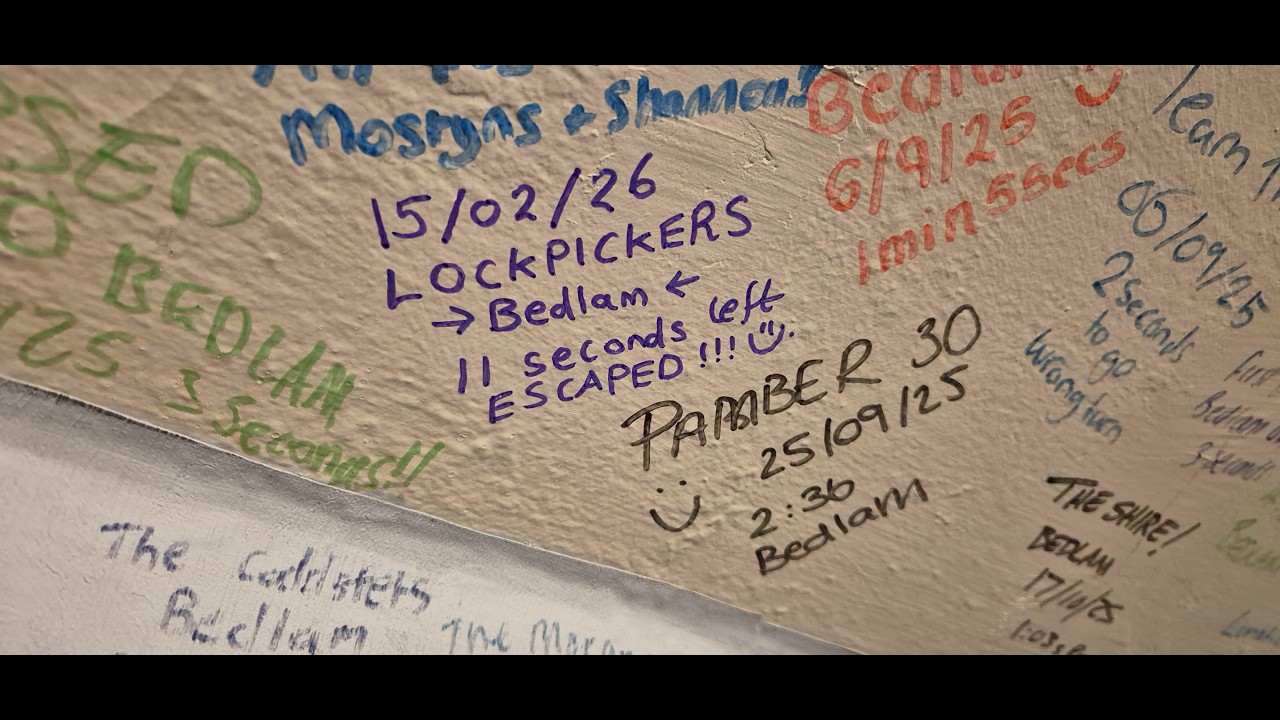 Mostyns + Shannon!
15/02/26
LOCKPICKERS
→ Bedlam ←
11 seconds left
ESCAPED !!!
Bedlam
6/9/25
1min 55secs
SED
BEDLAM
3 Seconds!!
PAMBER 30
25/09/25
2:36
Bedlam
Team
06/09/25
2 seconds
to go
Wrong turn
first
Bedlam
THE SHIRE!
BEDLAM
17/10/25
The
Bedlam
The